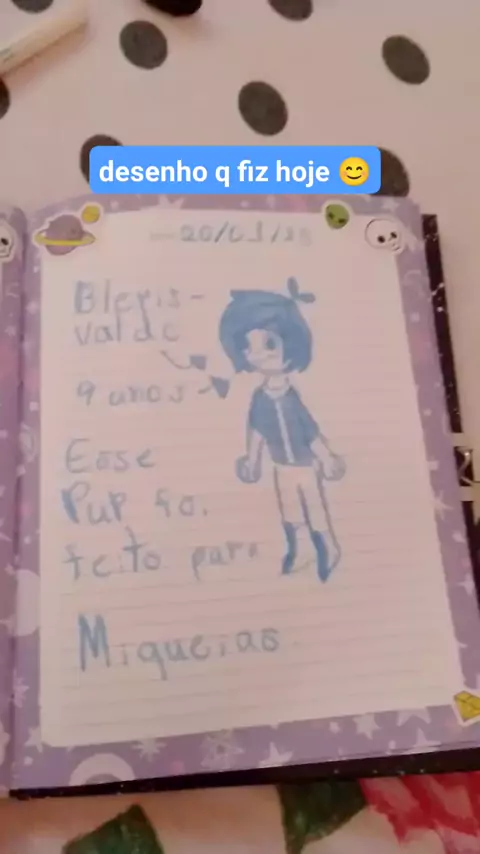 desenho q fiz hoje 😊
Bleris-
valde
9 anos
Esse
Pup fo.
feito para
Miqueias.